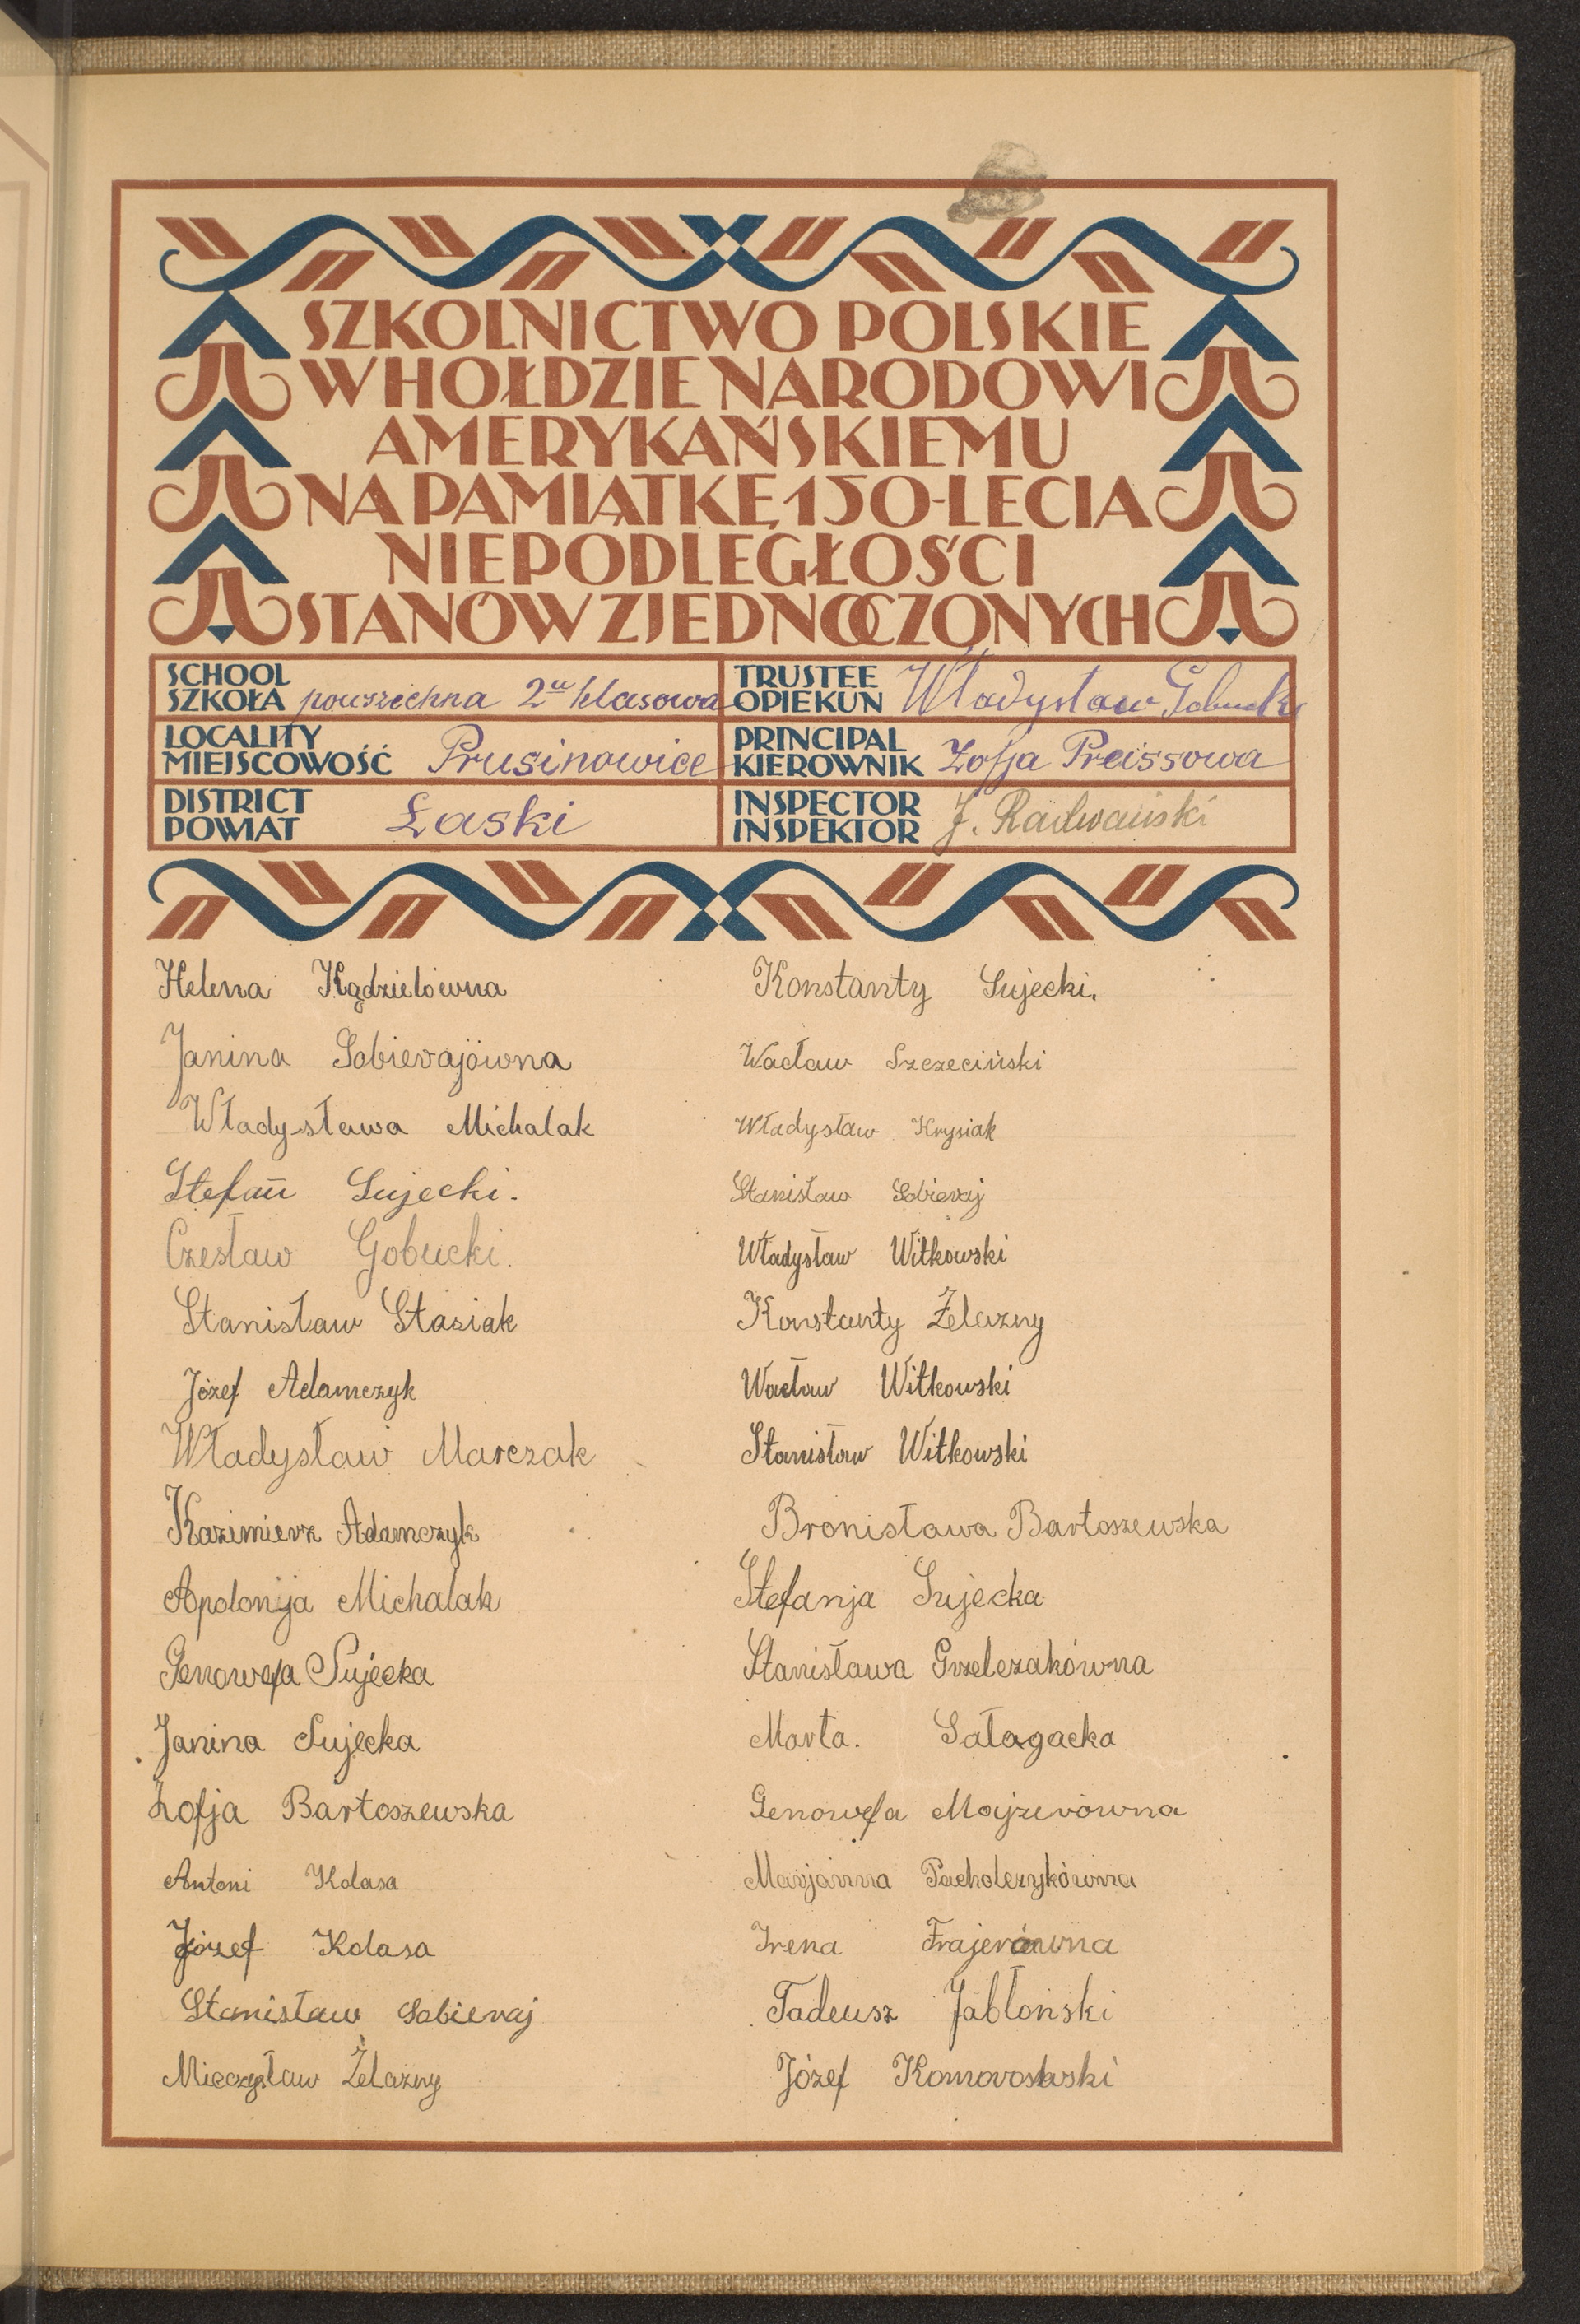 SZKOLNICTWO POLSKIE
W HOŁDZIE NARODOWI
AMERYKAŃSKIEMU
NA PAMIĄTKĘ 150-LECIA
NIEPODLEGŁOŚCI
STANÓW ZJEDNOCZONYCH
SCHOOL
SZKOŁA powszechna 2u klasowa
TRUSTEE
OPIEKUN Władysław Gobucki
LOCALITY
MIEJSCOWOŚĆ Prusinowice
PRINCIPAL
KIEROWNIK Zofja Preissowa
DISTRICT
POWIAT Łaski
INSPECTOR
INSPEKTOR J. Radwański
Helena Kądzielówna
Janina Sobierajówna
Władysława Michalak
Stefan Sujecki.
Czesław Gobucki.
Stanisław Stasiak
Józef Adamczyk
Władysław Marczak
Kazimierz Adamczyk
Apolonja Michalak
Genowefa Sujecka
Janina Sujecka
Zofja Bartoszewska
Antoni Kolasa
Józef Kolasa
Stanisław Sobieraj
Mieczysław Żelazny
Konstanty Sujecki.
Wacław Szczeciński
Władysław Krysiak
Stanisław Sobieraj
Władysław Witkowski
Konstanty Żelazny
Wacław Witkowski
Stanisław Witkowski
Bronisława Bartoszewska
Stefanja Sujecka
Stanisława Grzelczakówna
Marta. Sałagacka
Genowefa Majzerówna
Marjanna Pacholczykówna
Irena Frajerówna
Tadeusz Jabłoński
Józef